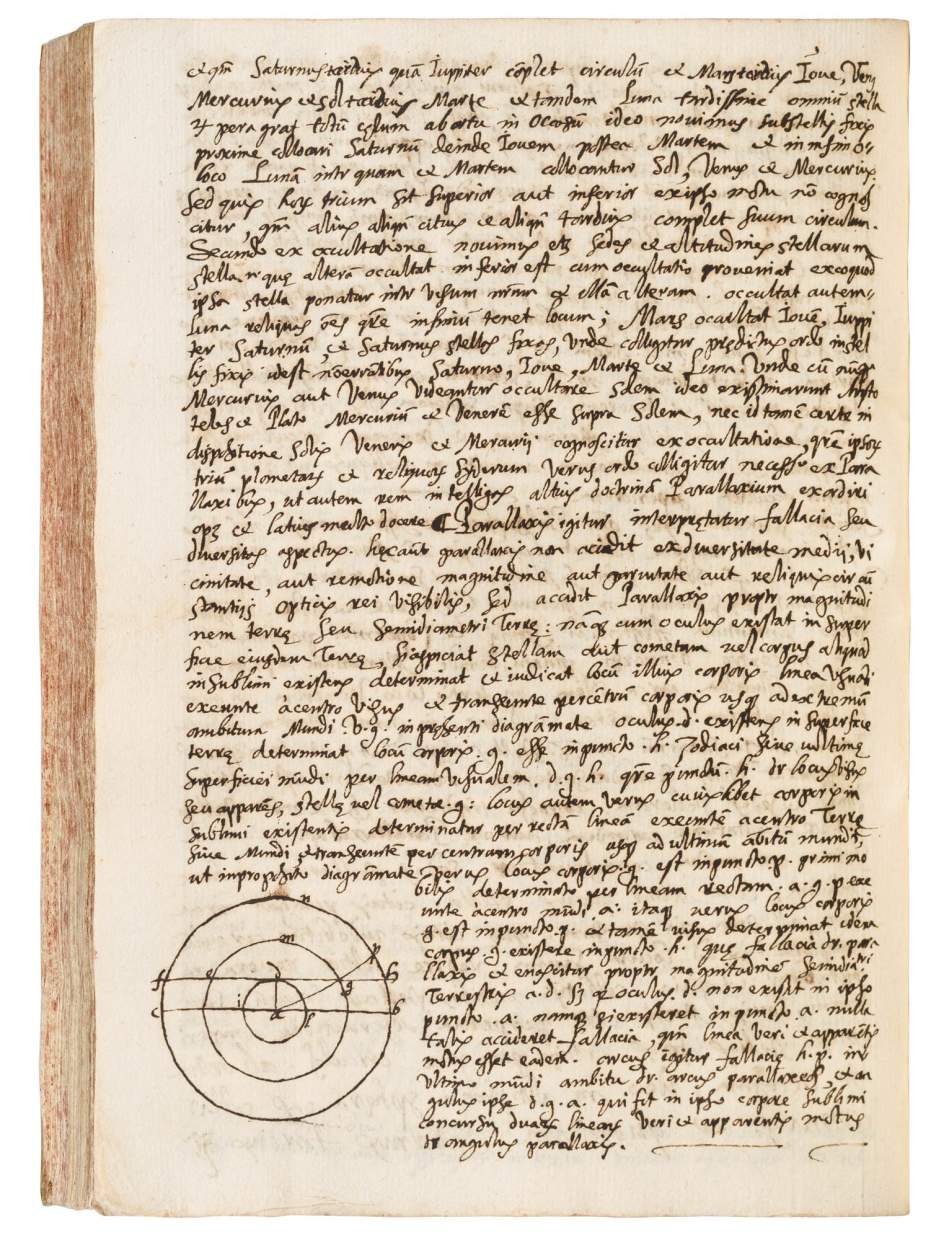 et qm̄ Saturnus tardius quā Iuppiter cōplet circulū et Mars tardius Ioue, Veni
Mercurius et Sol tardius Marte et tandem Luna tardissime omniū stella
peragrat totū cęlum ab ortu in occasū ideo nouimus sub stellis fixis
proxime collocari Saturnū deinde Iouem postea Martem et in infimo
loco Lunā intr quam et Martem collocantur Sol, Venus et Mercurius.
sed quis horꝝ trium sit superior aut inferior ex ipso motu nō cognos
citur, qm̄ alius aliqn̄ citius et aliqn̄ tardius complet suum circulum.
Secundo ex occultatione nouimus sedes et altitudines stellarum
stella nꝙ quę alterā occultat inferior est cum occultatio proueniat ex eo quod
ipsa stella ponatur intr visum nr̄um et illā alteram. occultat autem
luna reliquas oēs qr̄e infimū tenet locum; Mars occultat Iouē, Iuppi
ter Saturnū, et Saturnus stellas fixas, Vnde colligitur prędictus ordo in stel
lis fixis idest nō erratibus, Saturno, Ioue, Marte et Luna. Vnde cū nūꝙ
Mercurius aut Venus videantur occultare Solem ideo existimarunt Aristo
teles et Plato Mercuriū et Venerē esse supra Solem, nec id tamē certe in
dispositione Solis Veneris et Mercurij cognoscitur ex occultatione, qr̄e ipsorꝝ
triū planetarꝝ et reliquorꝝ syderum verus ordo colligitur necesse ex Para
llaxibus, ut autem rem intelligas altius doctrinā Parallaxium exordiri
opꝫ et latius multo docere ¶ Parallaxis igitur interpretatur fallacia seu
diuersitas aspectus. hęc aut̄ parallaxis non accidit ex diuersitate medij, vi
cinitate, aut remotione, magnitudine aut paruitate aut reliquis circū
stantijs opticis rei visibilis, sed accidit Parallaxis proptr magnitudi
nem terrę seu semidiametri Terrę: nāꝙ cum oculus existat in super
ficie eiusdem Terrę, si aspiciat stellam aut cometam vel corpus aliquod
in sublimi existens determinat et iudicat locū illius corporis linea visuali
exeunte à centro visus et transeunte per cētrū corporis usꝙ ad extremū
ambitum Mundi. v.g. in pręsenti diagrāmate oculus .d. existens in superficie
terrę determinat locū corporis .g. esse in puncto .h. Zodiaci siue ultimę
superficiei mūdi per lineam visualem .d.g.h. qr̄e punctū .h. dr̄ locus visus
seu apparēs, stellę vel cometæ .g: locus autem verus cuiuslibet corporis in
sublimi existentis determinatur per rectā lineā exeuntē a centro Terrę
siue Mundi et transeuntē per centrum corporis usꝙ ad ultimū ābitū mundi,
ut in proposito diagrāmate verus locus corporis .g. est in puncto .p. primi mo
bilis determinato per lineam rectam .a.g.p exe
unte à centro mūdi .a. itaꝙ verus locus corporis
g. est in puncto .p. et tamē visus determinat idem
corpus .g. existere in puncto .h. quę fallacia dr̄. para
llaxis et enascitur proptr magnitudinē semidiatri
Terrestris a.d. si oculus .d. non existit in ipso
puncto .a. namꝙ si existeret in puncto .a. nulla
talis accideret fallacia, qm̄ linea veri et apparētis
motus esset eadem. arcus igitur fallacię h.p. in
ultimo mūdi ambitu dr̄. arcus parallaxeos, et an
gulus ipse d.g.a. qui fit in ipso corpore sublimi
concursu duarꝝ linearꝝ veri et apparentis motus
dr̄ angulus parallaxis.
n
m
p
f
e
h
g
i
c
a
k
b